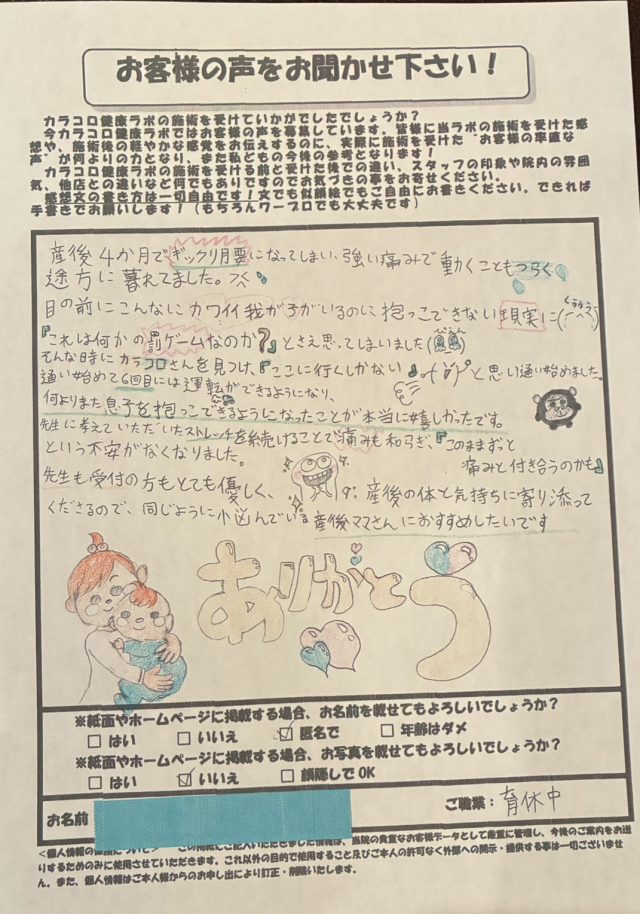 お客様の声をお聞かせ下さい！
カラコロ健康ラボの施術を受けていかがでしたでしょうか？
今カラコロ健康ラボではお客様の声を募集しています。皆様に当ラボの施術を受けた感
想や、施術後の軽やかな感覚をお伝えするのに、実際に施術を受けた“お客様の率直な
声”が何よりの力となり、また私どもの今後の参考となります！
カラコロ健康ラボの施術を受ける前と受けた後での違い、スタッフの印象や院内の雰囲
気、他店との違いなど何でもありですのでお気づきの事をお寄せください。
感想文の書き方は一切自由です！文でも似顔絵でもご自由にお書きください。できれば
手書きでお願いします！（もちろんワープロでも大丈夫です）
産後4か月でギックリ腰になってしまい、強い痛みで動くこともつらく
途方に暮れてました。
目の前にこんなにカワイイ我が子がいるのに抱っこできない現実に
『これは何かの罰ゲームなのか？』とさえ思ってしまいました
そんな時にカラコロさんを見つけ、『ここに行くしかない』と思い通い始めました。
通い始めて6回目には運転ができるようになり、
何よりまた息子を抱っこできるようになったことが本当に嬉しかったです。
先生に考えていただいたストレッチを続けることで痛みも和らぎ、『このままずっと
痛みと付き合うのかも』
という不安がなくなりました。
先生も受付の方もとても優しく、産後の体と気持ちに寄り添って
くださるので、同じように小悩んでいる産後ママさんにおすすめしたいです
ありがとう
※紙面やホームページに掲載する場合、お名前を載せてもよろしいでしょうか？
□ はい □ いいえ ☑ 匿名で □ 年齢はダメ
※紙面やホームページに掲載する場合、お写真を載せてもよろしいでしょうか？
□ はい ☑ いいえ □ 顔隠しでOK
お名前 ご職業：育休中
この用紙にご記入いただきました情報は、当院の貴重なお客様データとして厳重に管理し、今後のご案内をお送
りするためのみに使用させていただきます。これ以外の目的で使用すること及びご本人の許可なく外部への開示・提供する事は一切ございませ
ん。また、個人情報はご本人様からのお申し出により訂正・削除いたします。